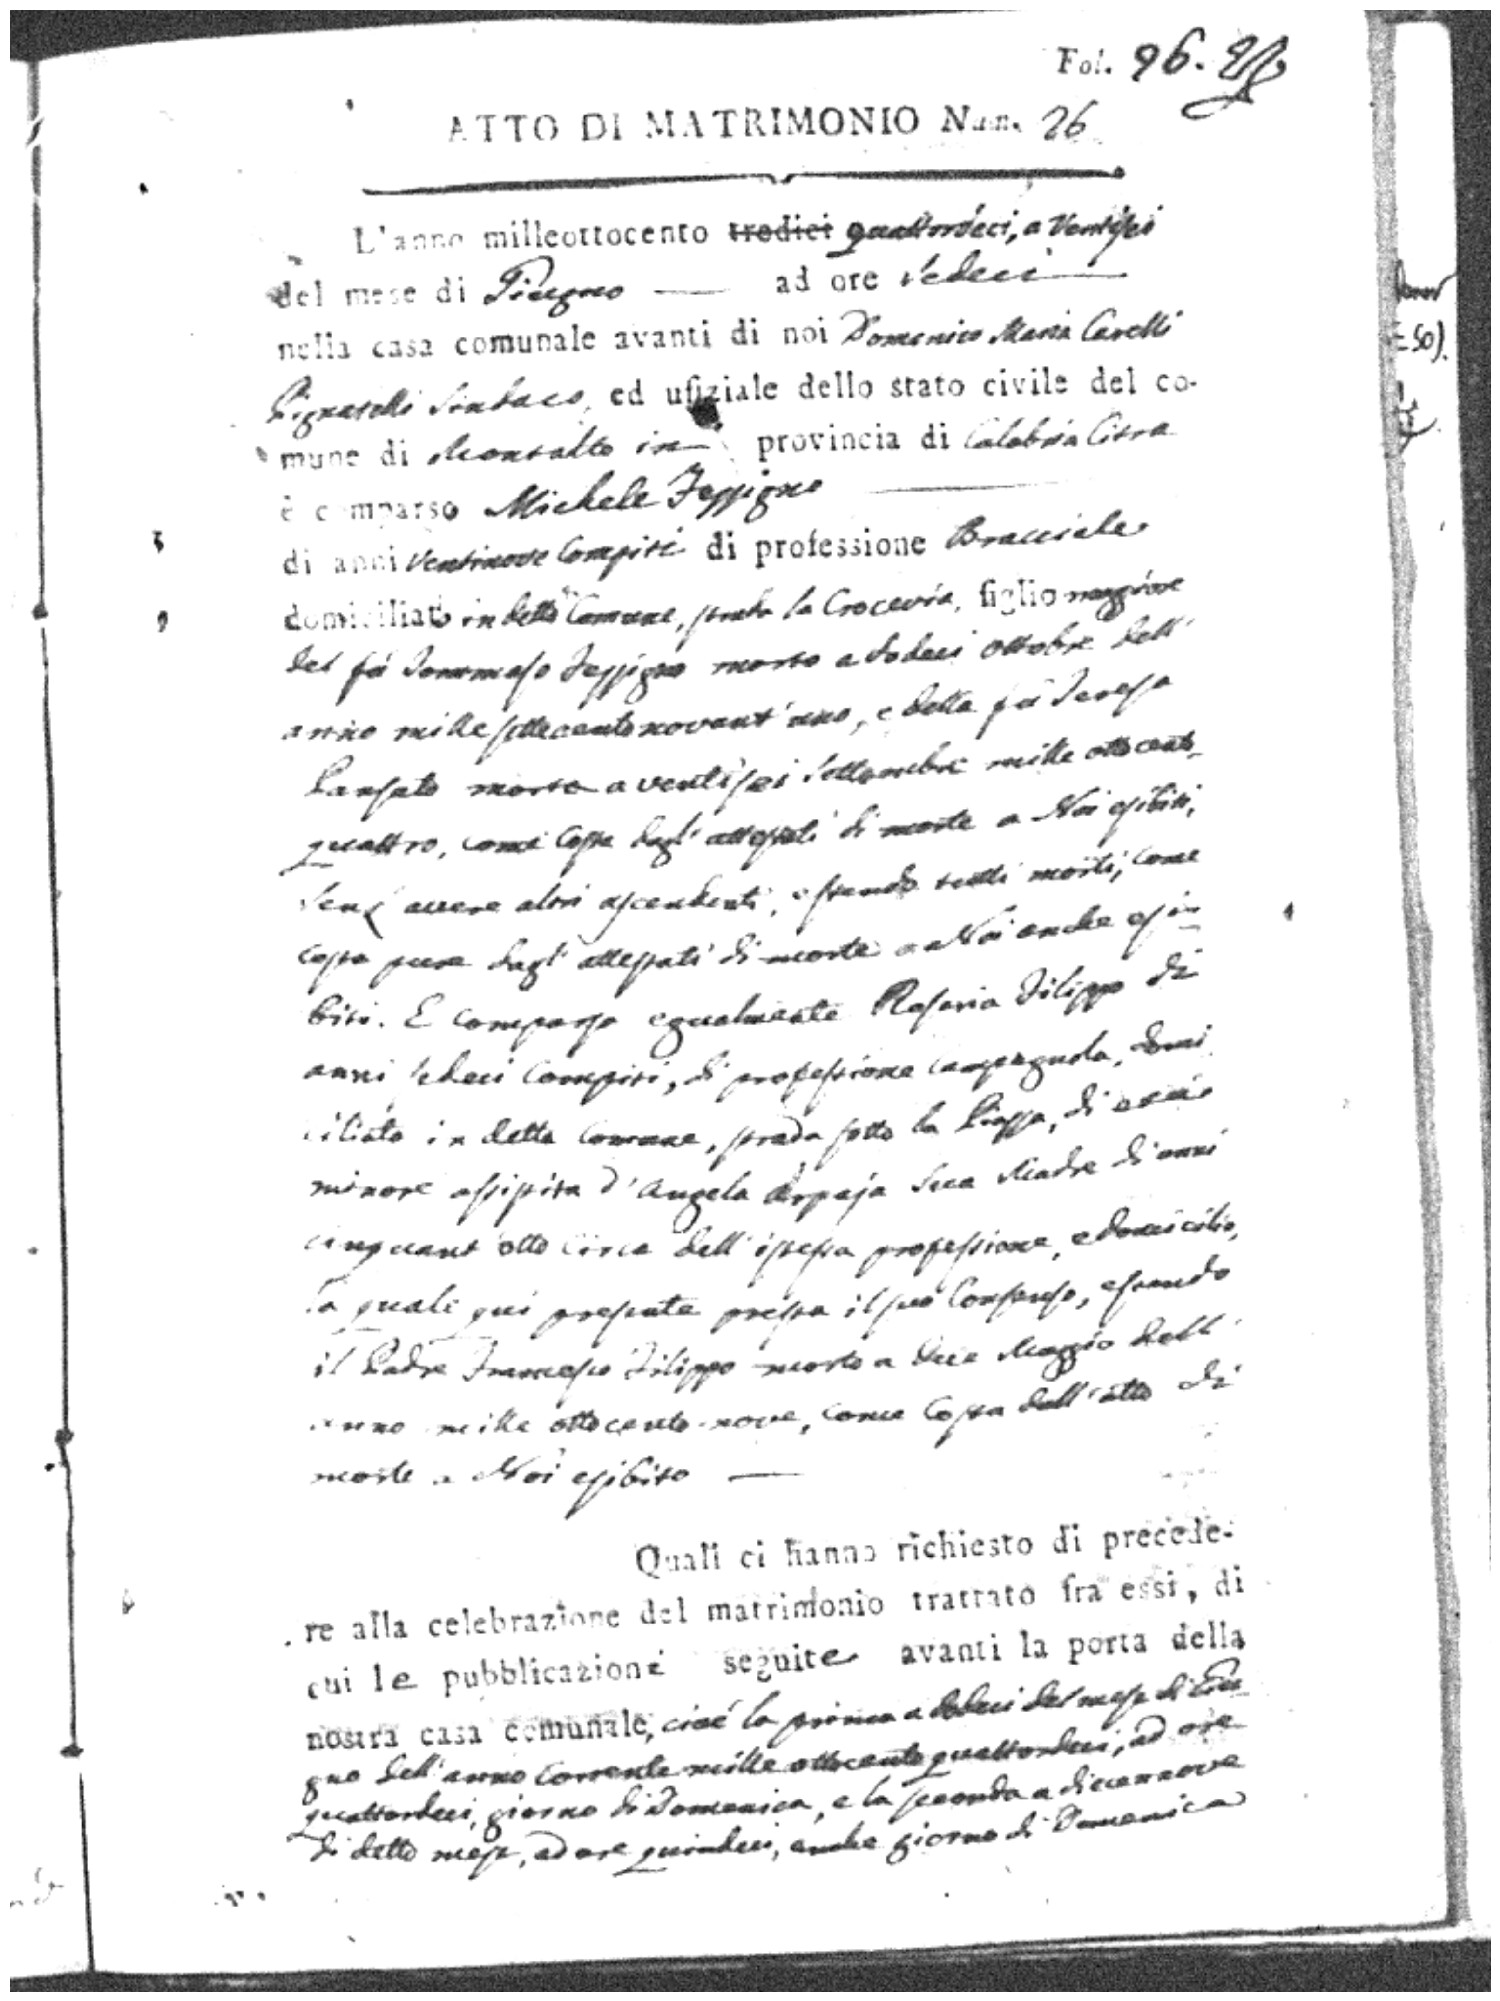 Fol. 96.
ATTO DI MATRIMONIO Num. 26
L'anno milleottocento tredici quattordeci, a ventisei
del mese di Giugno — ad ore sedeci
nella casa comunale avanti di noi Domenico Maria Carelli
Pignatelli Sindaco, ed ufiziale dello stato civile del co-
mune di Montalto in provincia di Calabria Citra
è comparso Michele
di anni ventinove compiti di professione Bracciale
domiciliato in detto Comune, strada la Crocevia, figlio maggiore
del fù Tommaso morto a dodeci ottobre dell'
anno mille settecento novant'uno, e della fù Teresa
morta a ventisei settembre mille ottocento
quattro, come costa dagl'attestati di morte a Noi esibiti,
senz'avere altri ascendenti, essendo tutti morti, come
costa pure dagl'attestati di morte a Noi anche esi-
biti. E comparsa egualmente Rosaria Filippo di
anni sedeci compiti, di professione campagnola, domi
ciliata in detto Comune, strada sotto la Piazza, di età
minore assistita d'Angela Arpaja sua Madre di anni
cinquant'otto circa dell'istessa professione, e domicilio,
la quale qui presente presta il suo Consenso, essendo
il Padre Francesco Filippo morto a due Maggio dell'
anno mille ottocento nove, come costa dall'atto di
morte a Noi esibito —
Quali ci hanno richiesto di precede-
re alla celebrazione del matrimonio trattato fra essi, di
cui le pubblicazioni seguite avanti la porta della
nostra casa comunale, cioè la prima a dodeci del mese di Giu
gno dell'anno corrente mille ottocento quattordeci, ad ore
quattordeci, giorno di Domenica, e la seconda a diecennove
di detto mese, ad ore quindeci, anche giorno di Domenica